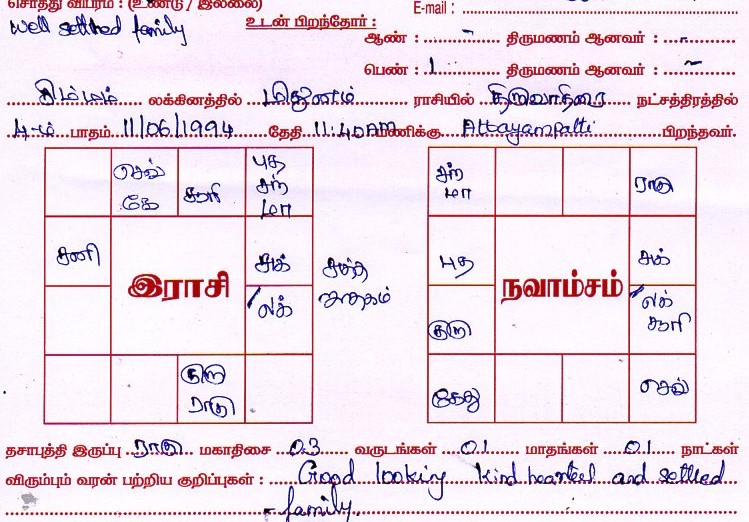 சொத்து விபரம் : (உண்டு / இல்லை)
E-mail :
well settled family
உடன் பிறந்தோர் :
ஆண் : - திருமணம் ஆனவர் : -
பெண் : 1 திருமணம் ஆனவர் : -
சிம்மம் லக்கினத்தில் மிதுனம் ராசியில் திருவாதிரை நட்சத்திரத்தில்
4-ம் பாதம் 11/06/1994 தேதி 11:40AM மணிக்கு Attayampatti பிறந்தவர்.
செவ் கே
சூரி
புத சந் மா
சனி
இராசி
சுக்
சுத்த
ஜாதகம்
லக்
குரு ராகு
சந் மா
ராகு
புத
நவாம்சம்
சுக்
குரு
லக் சூரி
கேது
செவ்
தசாபுத்தி இருப்பு ராகு மகாதிசை 03 வருடங்கள் 01 மாதங்கள் 01 நாட்கள்
விரும்பும் வரன் பற்றிய குறிப்புகள் : Good looking kind hearted and settled
family.